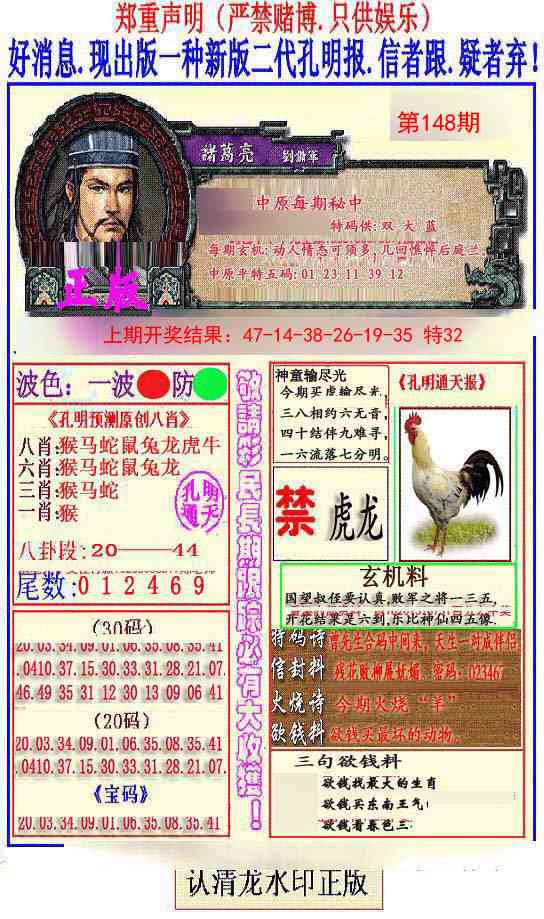 郑重声明（严禁赌博.只供娱乐）
好消息.现出版一种新版二代孔明报.信者跟.疑者弃!
第148期
諸葛亮 劉備軍
中原每期秘中
特码供:双 大 蓝
每期玄机:动人情态可须多,几回憔悴后庭兰.
中原平特五码:01 23 11 39 12
正版
上期开奖结果：47-14-38-26-19-35 特32
波色：一波 防
《孔明预测原创八肖》
八肖:猴马蛇鼠兔龙虎牛
六肖:猴马蛇鼠兔龙
三肖:猴马蛇
一肖:猴
孔明
通天
八卦段:20——44
尾数:012469
敬請彩民長期跟踪必有大收獲！
神童输尽光
今期买虎输尽光,
三八相约六无音,
四十结伴九难寻,
一六流落七分明。
《孔明通天报》
禁 虎龙
玄机料
国望叔侄要认真,败军之将一三五,
开花结果是六到,东比神仙四五像.
特码诗 曹先生合码中间来，天生一对成伴侣
信封料 残花败柳展妩媚.密码:023467
火烧诗 今期火烧“羊”
欲钱料 欲钱买最坏的动物.
三句欲钱料
欲钱找最大的生肖
欲钱买东南王气!
欲钱看春色三
(30码)
20.03.34.09.01.06.35.08.35.41
.0410.37.15.30.33.31.28.21.07
46.49.35 31 12 30 13 09 06 41
(20码)
20.03.34.09.01.06.35.08.35.41
.0410.37.15.30.33.31.28.21.07.
《宝码》
20.03.34.09.01.06.35.08.35.41
认清龙水印正版